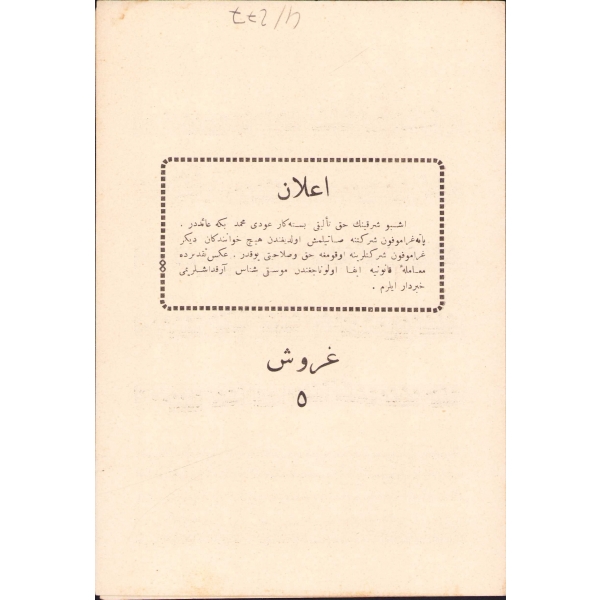 4/277
اعلان
اشبو شرقینك حق تألیفی بسته‌كار عودی محمد بكه عائددر .
غراموفون شركتنه صاتیلمش اولدیغندن هیچ خوانندكان دیكر
غراموفون شركتلرینه اوقومغه حق وصلاحیتی یوقدر . عكس تقدیرده
معامله‌ٔ قانونیه ایفا اولوناجغندن موسیقی شناس آرقداشلریمی
خبردار ایلرم .
غروش
٥